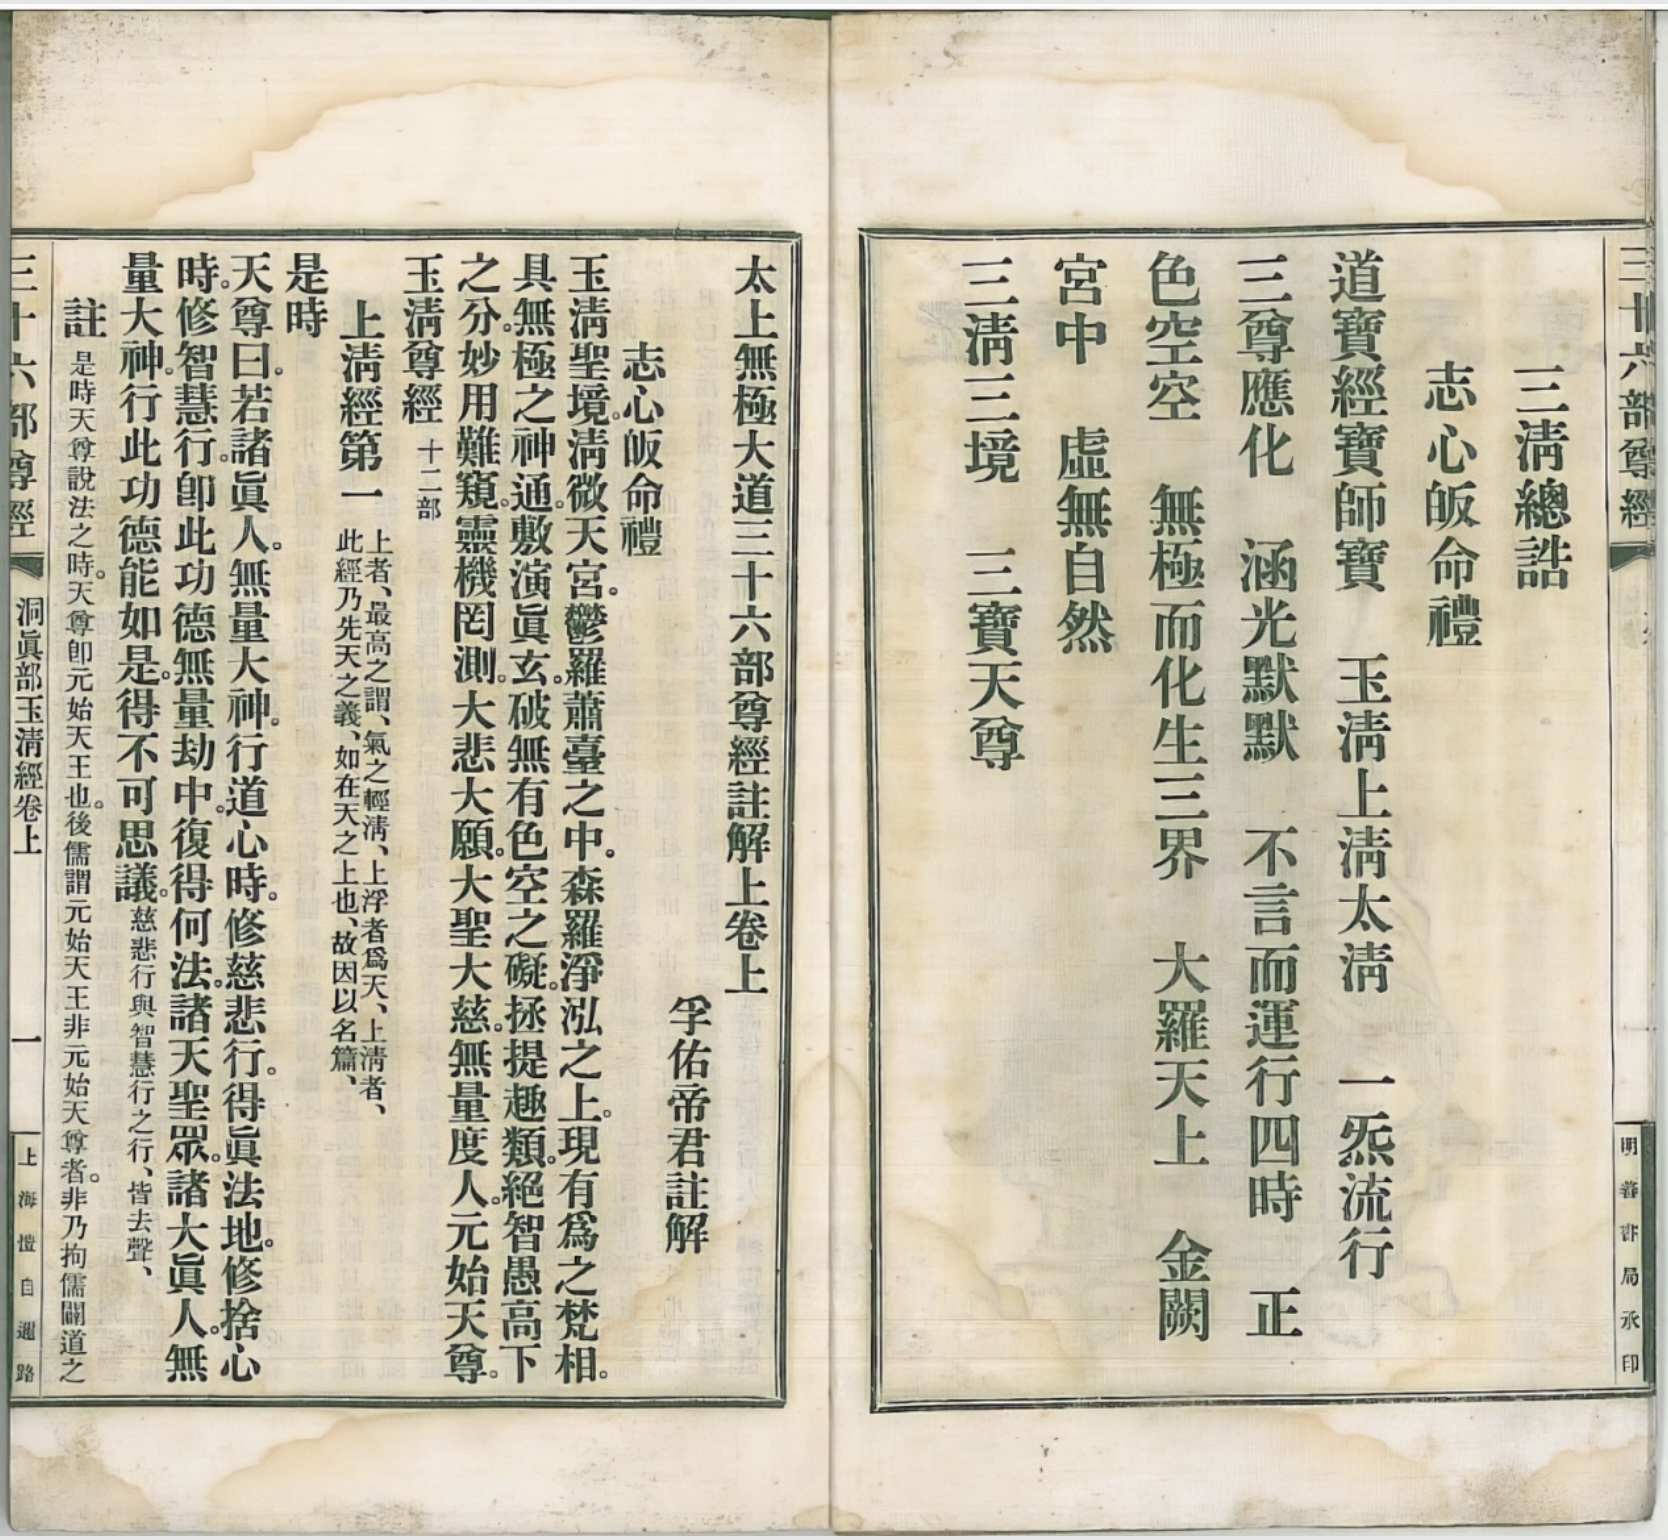 三十六部尊經
明善書局承印
三淸總誥
志心皈命禮
道寶經寶師寶　玉淸上淸太淸　一炁流行
三尊應化　涵光默默　不言而運行四時　正
色空空　無極而化生三界　大羅天上　金闕
宮中　虛無自然
三淸三境　三寶天尊
太上無極大道三十六部尊經註解上卷上
孚佑帝君註解
志心皈命禮
玉淸聖境。淸微天宮。鬱羅蕭臺之中。森羅淨泓之上。現有爲之梵相。
具無極之神通。敷演眞玄。破無有色空之礙。拯提趣類。絕智愚高下
之分。妙用難窺。靈機罔測。大悲大願。大聖大慈。無量度人。元始天尊。
玉淸尊經　十二部
上淸經第一　上者、最高之謂、氣之輕淸、上浮者爲天、上淸者、
此經乃先天之義、如在天之上也、故因以名篇、
是時
天尊曰。若諸眞人。無量大神。行道心時。修慈悲行。得眞法地。修捨心
時。修智慧行。卽此功德無量劫中。復得何法。諸天聖眾。諸大眞人。無
量大神。行此功德能如是。得不可思議。慈悲行與智慧行之行、皆去聲、
註　是時天尊說法之時。天尊卽元始天王也。後儒謂元始天王非元始天尊者。非乃拘儒闢道之
三十六部尊經　洞眞部玉淸經卷上　一　上海愷自邇路